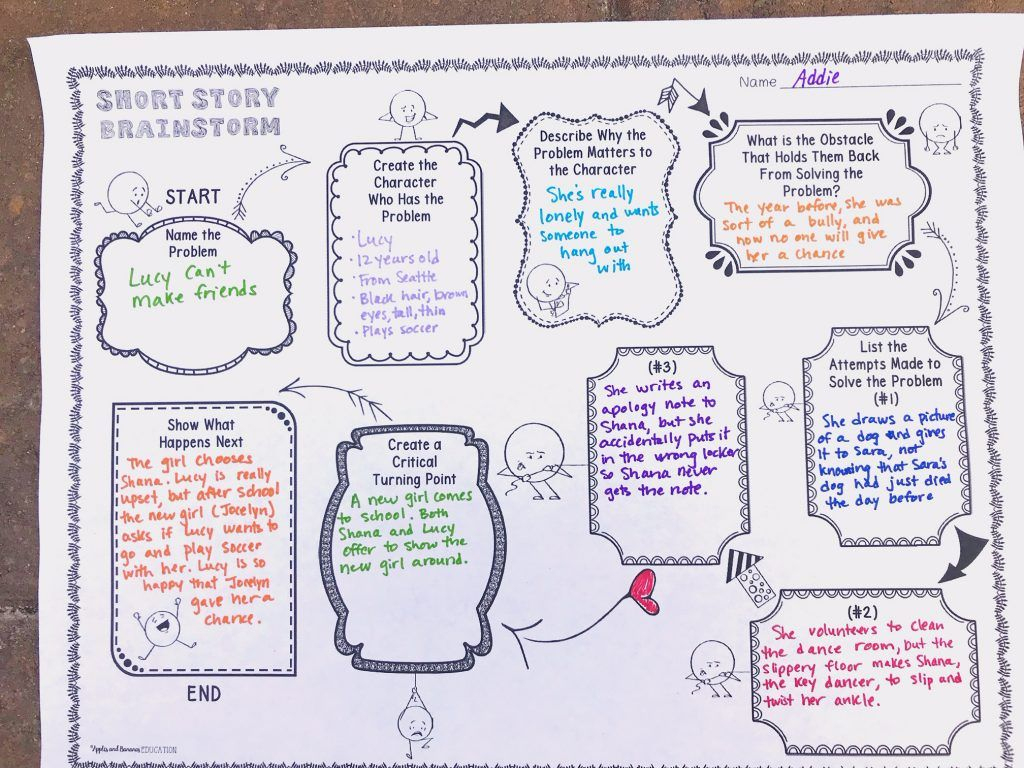 SHORT STORY
BRAINSTORM
Name Addie
START
Name the
Problem
Lucy Can't
make friends
Create the
Character
Who Has the
Problem
• Lucy
• 12 years old
• From Seattle
• Black hair, brown
eyes, tall, thin
• Plays soccer
Describe Why the
Problem Matters to
the Character
She's really
lonely and wants
someone to
hang out
with
What is the Obstacle
That Holds Them Back
From Solving the
Problem?
The year before, she was
sort of a bully, and
now no one will give
her a chance
List the
Attempts Made to
Solve the Problem
(#1)
She draws a picture
of a dog and gives
it to Sara, not
knowing that Sara's
dog had just died
the day before
(#2)
She volunteers to clean
the dance room, but the
slippery floor makes Shana,
the key dancer, to slip and
twist her ankle.
(#3)
She writes an
apology note to
Shana, but she
accidentally puts it
in the wrong locker
so Shana never
gets the note.
Create a
Critical
Turning Point
A new girl comes
to school. Both
Shana and Lucy
offer to show the
new girl around.
Show What
Happens Next
The girl chooses
Shana. Lucy is really
upset, but after school
the new girl (Jocelyn)
asks if Lucy wants to
go and play soccer
with her. Lucy is so
happy that Jocelyn
gave her a
chance.
END
©Apples and Bananas EDUCATION